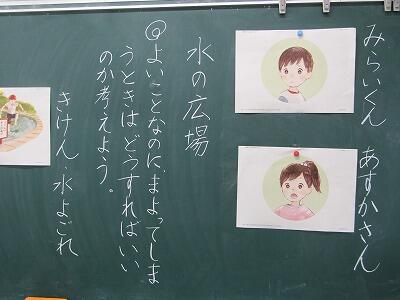 みらいくん あすかさん
水の広場
◎よいことなのに、まよってしま
うときはどうすればいい
のか考えよう。
きけん・水よごれ